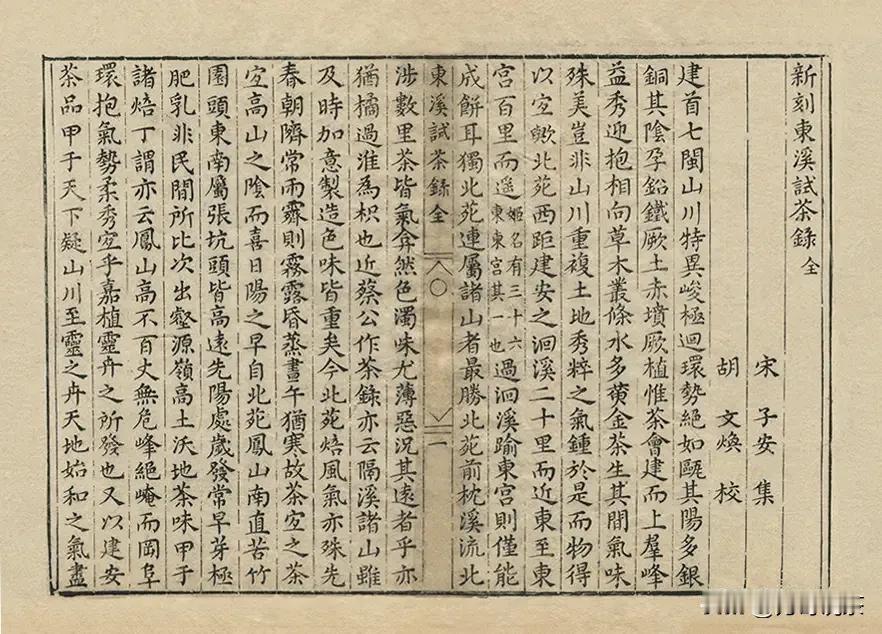 新刻東溪試茶錄 全
宋 子安 集
胡 文煥 校
建首七閩山川特異峻極迴環勢絕如甌其陽多銀
銅其陰孕鉛鐵厥土赤墳厥植惟茶會建而上羣峰
益秀迎抱相向草木叢條水多黄金茶生其間氣味
殊美豈非山川重複土地秀粹之氣鍾於是而物得
以宜歟北苑西距建安之洄溪二十里而近東至東
宮百里而遥姬名有三十六東東宮其一也過洄溪踰東宮則僅能
成餅耳獨北苑連屬諸山者最勝北苑前枕溪流北
東溪試茶錄 全 八〇 一
涉數里茶皆氣弇然色濁味尤薄惡況其遠者乎亦
猶橘過淮為枳也近蔡公作茶錄亦云隔溪諸山雖
及時加意製造色味皆重矣今北苑焙風氣亦殊先
春朝隮常雨霽則霧露昏蒸晝午猶寒故茶宜之茶
宜高山之陰而喜日陽之早自北苑鳳山南直苦竹
園頭東南屬張坑頭皆高遠先陽處歲發常早芽極
肥乳非民間所比次出壑源嶺高土沃地茶味甲于
諸焙丁謂亦云鳳山高不百丈無危峰絕崦而岡阜
環抱氣勢柔秀宜乎嘉植靈卉之所發也又以建安
茶品甲于天下疑山川至靈之卉天地始和之氣盡